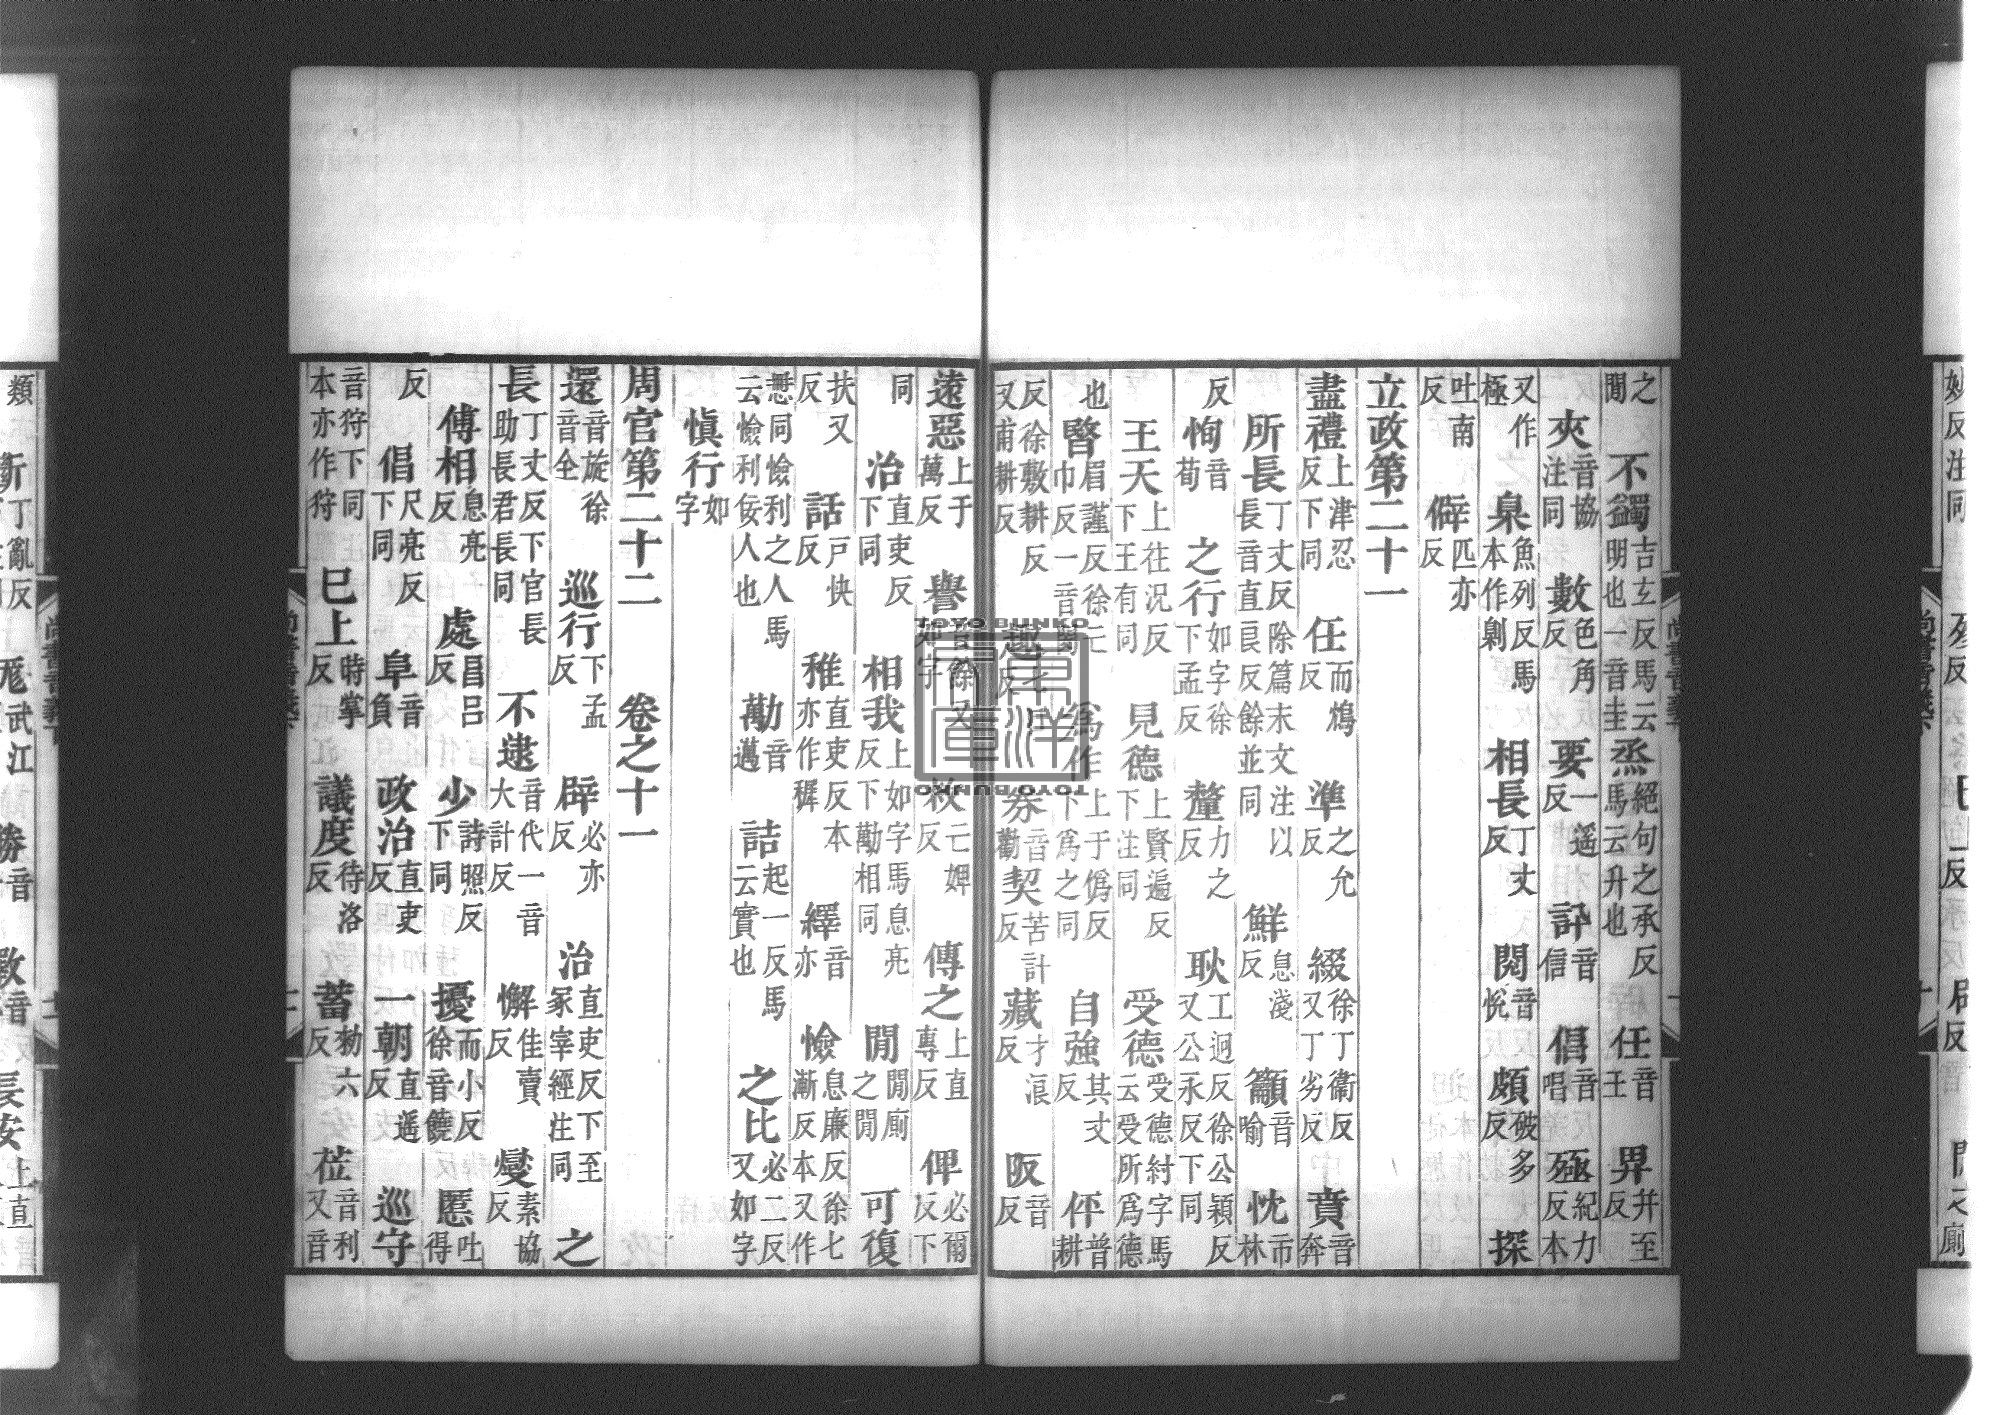 之閒 不蠲吉玄反馬云明也一音圭 烝絕句之承反馬云升也 任音王 畀并至反
夾音協注同 數色角反 要一遥反 訊音信 倡音唱 殛紀力反本
又作極 臬魚列反馬本作剠 相長丁丈反 閱音悅 頗破多反 探
吐南反 僻匹亦反
立政第二十一
盡禮上津忍反下同 任而鴆反 準之允反 綴徐丁衞反又丁劣反 賁音奔
所長丁丈反除篇末文注以長音直良反餘並同 鮮息淺反 籲音喻 忱市林
反 恂音荀 之行如字徐下孟反 釐力之反 耿工迥反徐公穎反又公永反下同
王天上往況反下王有同 見德上賢遍反下注同 受德受德紂字馬云受所爲德
也 暋眉謹反徐亡巾反一音閔 爲作上于僞反下爲之同 自強其丈反 伻普耕
反徐敷耕反又甫耕反 趣七口反 券音勸 契苦計反 藏才浪反 阪音反
遠惡上于萬反 譽音餘又如字 敉亡婢反 傳之上直專反 俾必爾反下
同 治直吏反下同 相我上如字馬息亮反下勱相同 閒閒廁之閒 可復
扶又反 話戶快反 稚直吏反本亦作稺 繹音亦 憸息廉反徐七漸反本又作
㦗同憸利之人馬云憸利佞人也 勱音邁 詰起一反馬云實也 之比必二反又如字
愼行如字
周官第二十二 卷之十一
還音旋徐音全 巡行下孟反 辟必亦反 治直吏反下至冢宰經注同 之
長丁丈反下官長助長君長同 不逮音代一音大計反 懈佳賣反 燮素協反
傅相息亮反 處昌呂反 少詩照反下同 擾而小反徐音饒 慝吐得
反 倡尺亮反下同 阜音負 政治直吏反 一朝直遥反 巡守
音狩下同本亦作狩 巳上時掌反 議度待洛反 蓄勑六反 莅音利又音